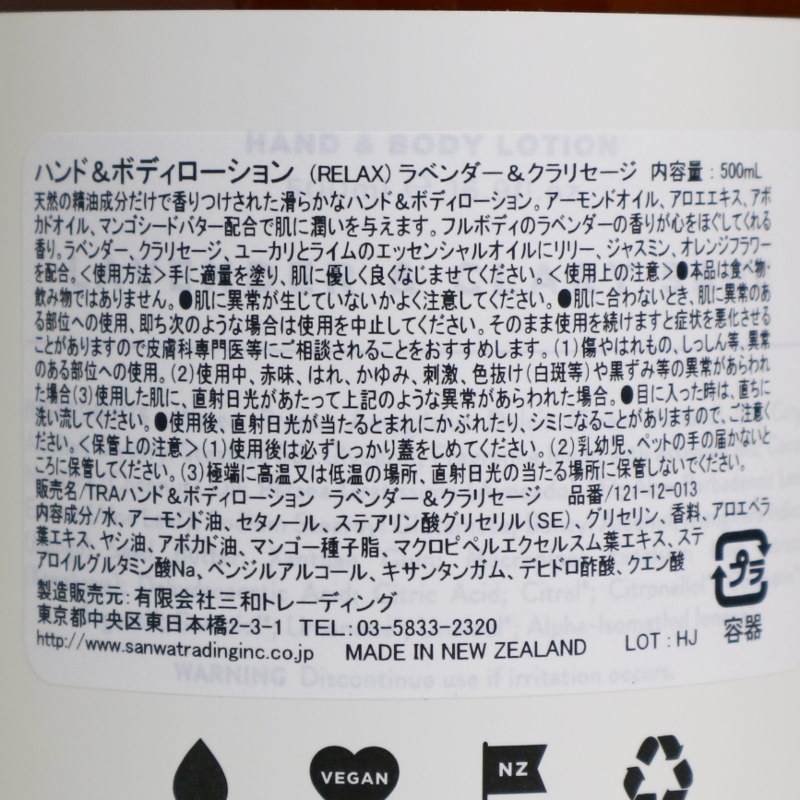 HAND & BODY LOTION
ハンド&ボディローション (RELAX) ラベンダー&クラリセージ 内容量:500mL
天然の精油成分だけで香りつけされた滑らかなハンド&ボディローション。アーモンドオイル、アロエエキス、アボ
カドオイル、マンゴシードバター配合で肌に潤いを与えます。フルボディのラベンダーの香りが心をほぐしてくれる
香り。ラベンダー、クラリセージ、ユーカリとライムのエッセンシャルオイルにリリー、ジャスミン、オレンジフラワー
を配合。<使用方法>手に適量を塗り、肌に優しく良くなじませてください。<使用上の注意>●本品は食べ物・
飲み物ではありません。●肌に異常が生じていないかよく注意してください。●肌に合わないとき、肌に異常のあ
る部位への使用、即ち次のような場合は使用を中止してください。そのまま使用を続けますと症状を悪化させる
ことがありますので皮膚科専門医等にご相談されることをおすすめします。(1)傷やはれもの、しっしん等、異常
のある部位への使用。(2)使用中、赤味、はれ、かゆみ、刺激、色抜け(白斑等)や黒ずみ等の異常があらわれ
た場合(3)使用した肌に、直射日光があたって上記のような異常があらわれた場合。●目に入った時は、直ちに
洗い流してください。●使用後、直射日光が当たるとまれにかぶれたり、シミになることがありますので、ご注意く
ださい。<保管上の注意>(1)使用後は必ずしっかり蓋をしめてください。(2)乳幼児、ペットの手の届かないと
ころに保管してください。(3)極端に高温又は低温の場所、直射日光の当たる場所に保管しないでください。
販売名/TRAハンド&ボディローション ラベンダー&クラリセージ 品番/121-12-013
内容成分/水、アーモンド油、セタノール、ステアリン酸グリセリル(SE)、グリセリン、香料、アロエベラ
葉エキス、ヤシ油、アボカド油、マンゴー種子脂、マクロピペルエクセルスム葉エキス、ステ
アロイルグルタミン酸Na、ベンジルアルコール、キサンタンガム、デヒドロ酢酸、クエン酸
プラ
製造販売元:有限会社三和トレーディング
東京都中央区東日本橋2-3-1 TEL:03-5833-2320
http://www.sanwatradinginc.co.jp MADE IN NEW ZEALAND LOT:HJ 容器
WARNING Discontinue use if irritation occurs.
VEGAN
NZ